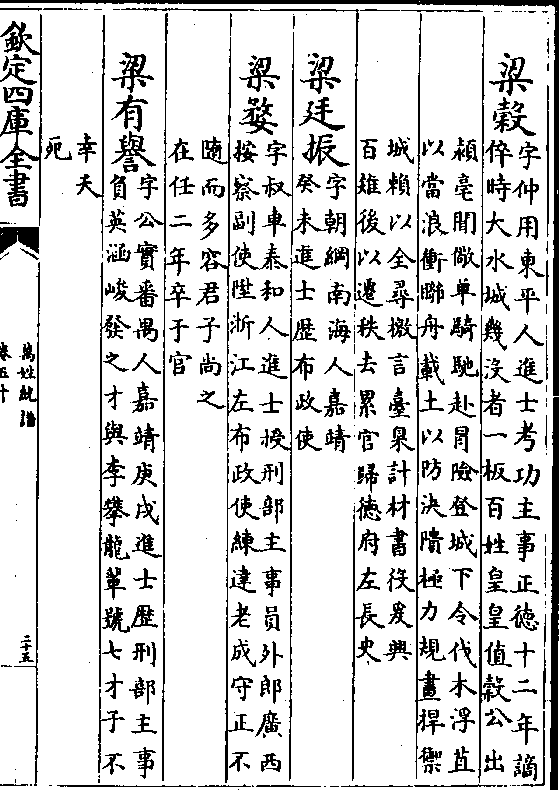 梁穀字仲用東平人進士考功主事正德十二年謫
倅時大水城幾沒者一板百姓皇皇值穀公出
潁亳聞儆單騎馳赴冐險登城下令伐木浮苴
以當浪衝聯舟載土以防決隤極力規畫捍禦
城賴以全尋檄言臺臬計材書役爰興
百雉後以遷秩去累官歸德府左長史
梁廷振字朝綱南海人嘉靖
癸未進士歷布政使
梁婺字叔車泰和人進士授刑部主事員外郎廣西
按察副使陞浙江左布政使練達老成守正不
隨而多容君子尚之
在任二年卒于官
梁有譽字公實番禺人嘉靖庚戌進士歷刑部主事
負英涵峻發之才與李攀龍輩號七才子不
幸夭
死
欽定四庫全書
萬姓統譜
卷五十
二十五